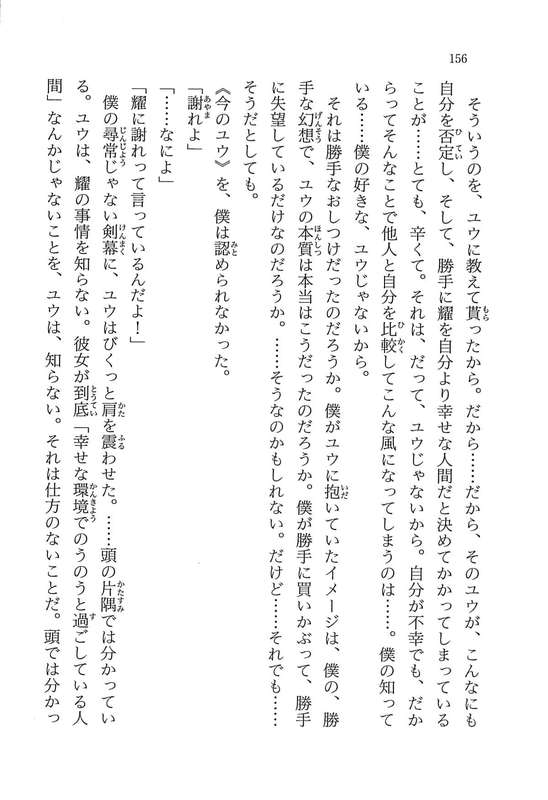 156
そういうのを、ユウに教えて貰ったから。だから……だから、そのユウが、こんなにも
自分を否定し、そして、勝手に耀を自分より幸せな人間だと決めてかかってしまっている
ことが……とても、辛くて。それは、だって、ユウじゃないから。自分が不幸でも、だか
らってそんなことで他人と自分を比較してこんな風になってしまうのは……。僕の知って
いる……僕の好きな、ユウじゃないから。
それは勝手なおしつけだったのだろうか。僕がユウに抱いていたイメージは、僕の、勝
手な幻想で、ユウの本質は本当はこうだったのだろうか。僕が勝手に買いかぶって、勝手
に失望しているだけなのだろうか。……そうなのかもしれない。だけど……それでも……
そうだとしても。
《今のユウ》を、僕は認められなかった。
「謝れよ」
「……なによ」
「耀に謝れって言っているんだよ！」
僕の尋常じゃない剣幕に、ユウはびくっと肩を震わせた。……頭の片隅では分かってい
る。ユウは、耀の事情を知らない。彼女が到底「幸せな環境でのうのうと過ごしている人
間」なんかじゃないことを、ユウは、知らない。それは仕方のないことだ。頭では分かっ